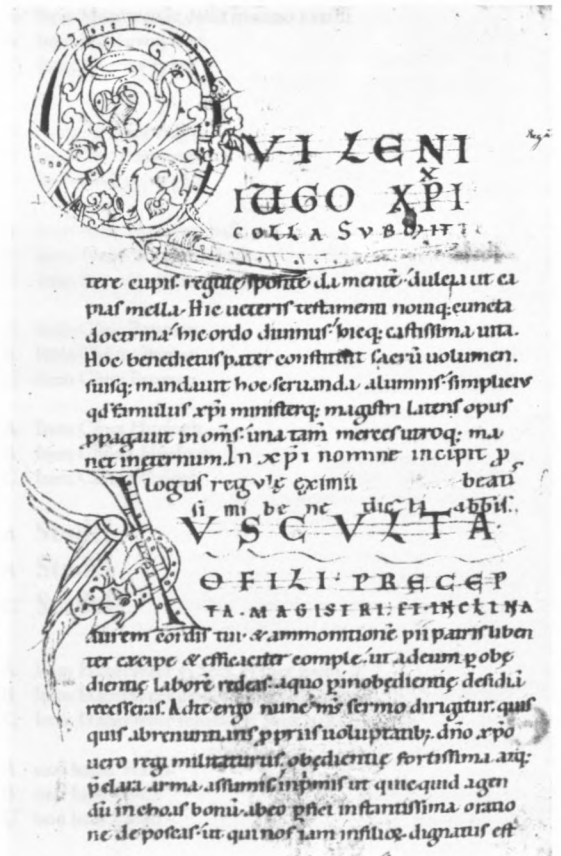 QVI LENI
IUGO XPI
COLLA SVBMIT
tere cupis regulę sponte da mentē dulcia ut ca
pias mella. Hic ueteris testamenti nouiq; cuncta
doctrina hic ordo diuinus hicq; castissima uita.
Hoc benedictus pater constituit sacrū uolumen.
suisq; mandauit hoc seruanda alumnis. simpliciter
qd famulus xpi ministerq; magistri Latens opus
ppagauit in oms. una tam merces utroq; ma
net ineternum. In xpi nomine incipit p
logus regulę eximii beati
si mi be ne dicti abbis.
AVSCVLTA
O FILI PRECEP
TA MAGISTRI ET INCLINA
aurem cordis tui & ammonitionē pii patris liben
ter excipe & efficaciter comple. ut ad eum p obę
dientię laborē redeas. a quo p inobedientię desidiā
recesseras. Ad te ergo nunc m sermo dirigitur. quis
quis abrenuntians ppriis uoluptatib; dño xpo
uero regi militaturus. obędientię fortissima atq;
pclara arma assumis. inpmis ut quicquid agen
dū inchoas bonū. ab eo pfici instantissima oratio
ne deposcas. ut qui nos iam in filioꝝ dignatus est